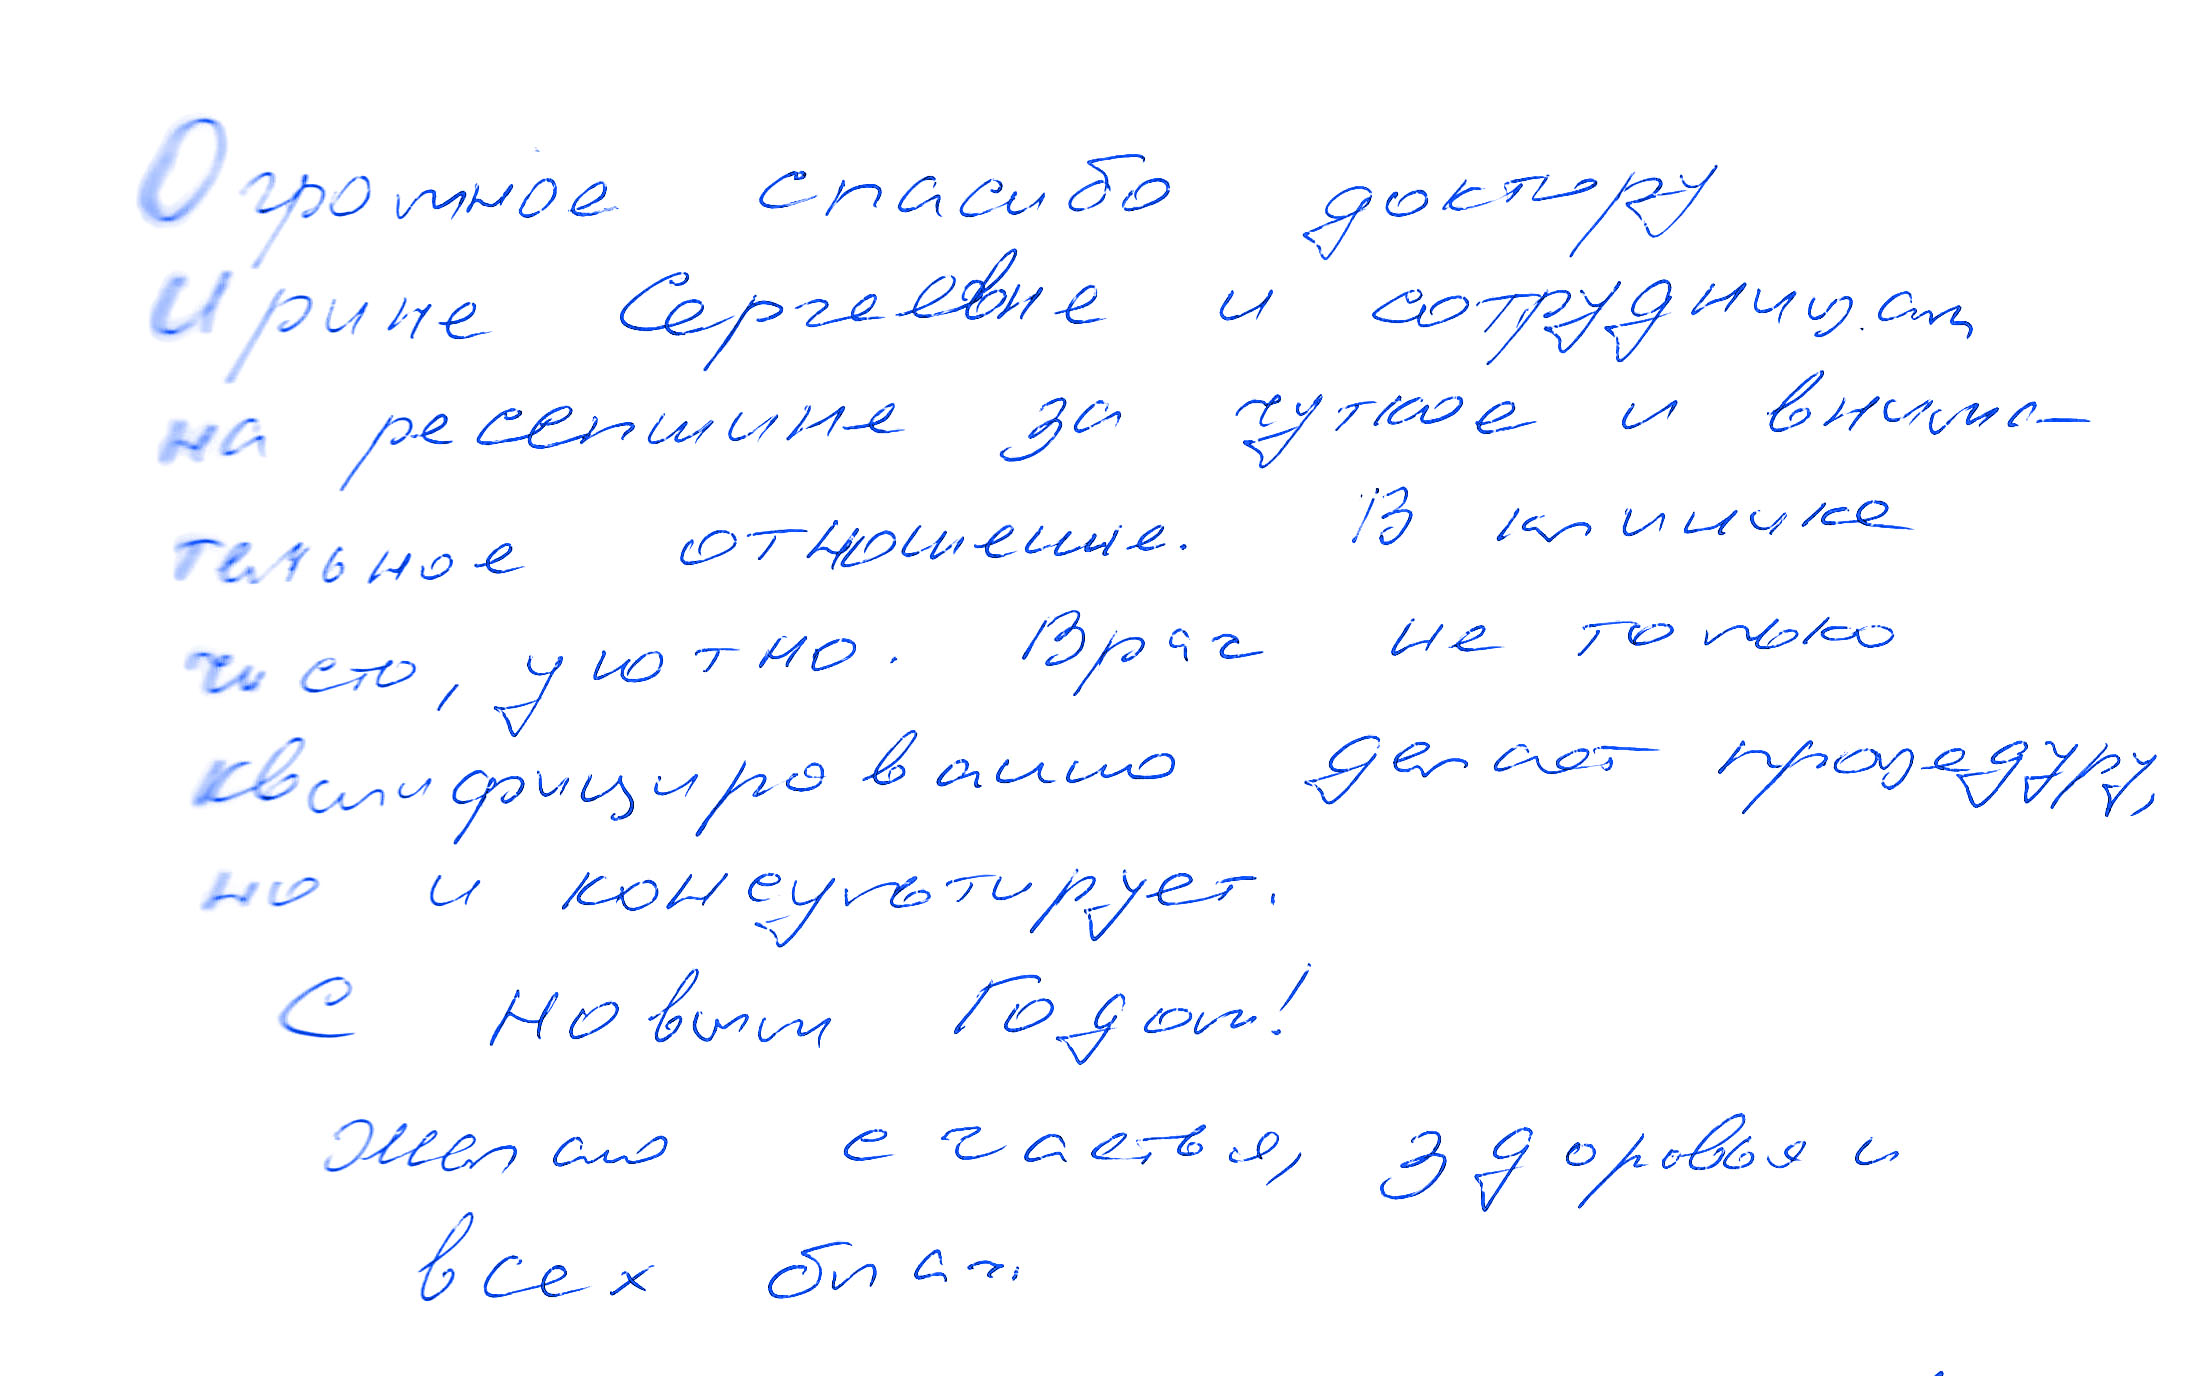 Огромное спасибо доктору
Ирине Сергеевне и сотрудницам
на ресепшине за чуткое и внима-
тельное отношение. В клинике
чисто, уютно. Врач не только
квалифицировано делает процедуру,
но и консультирует.
С Новым Годом!
Желаю счастья, здоровья и
всех благ.